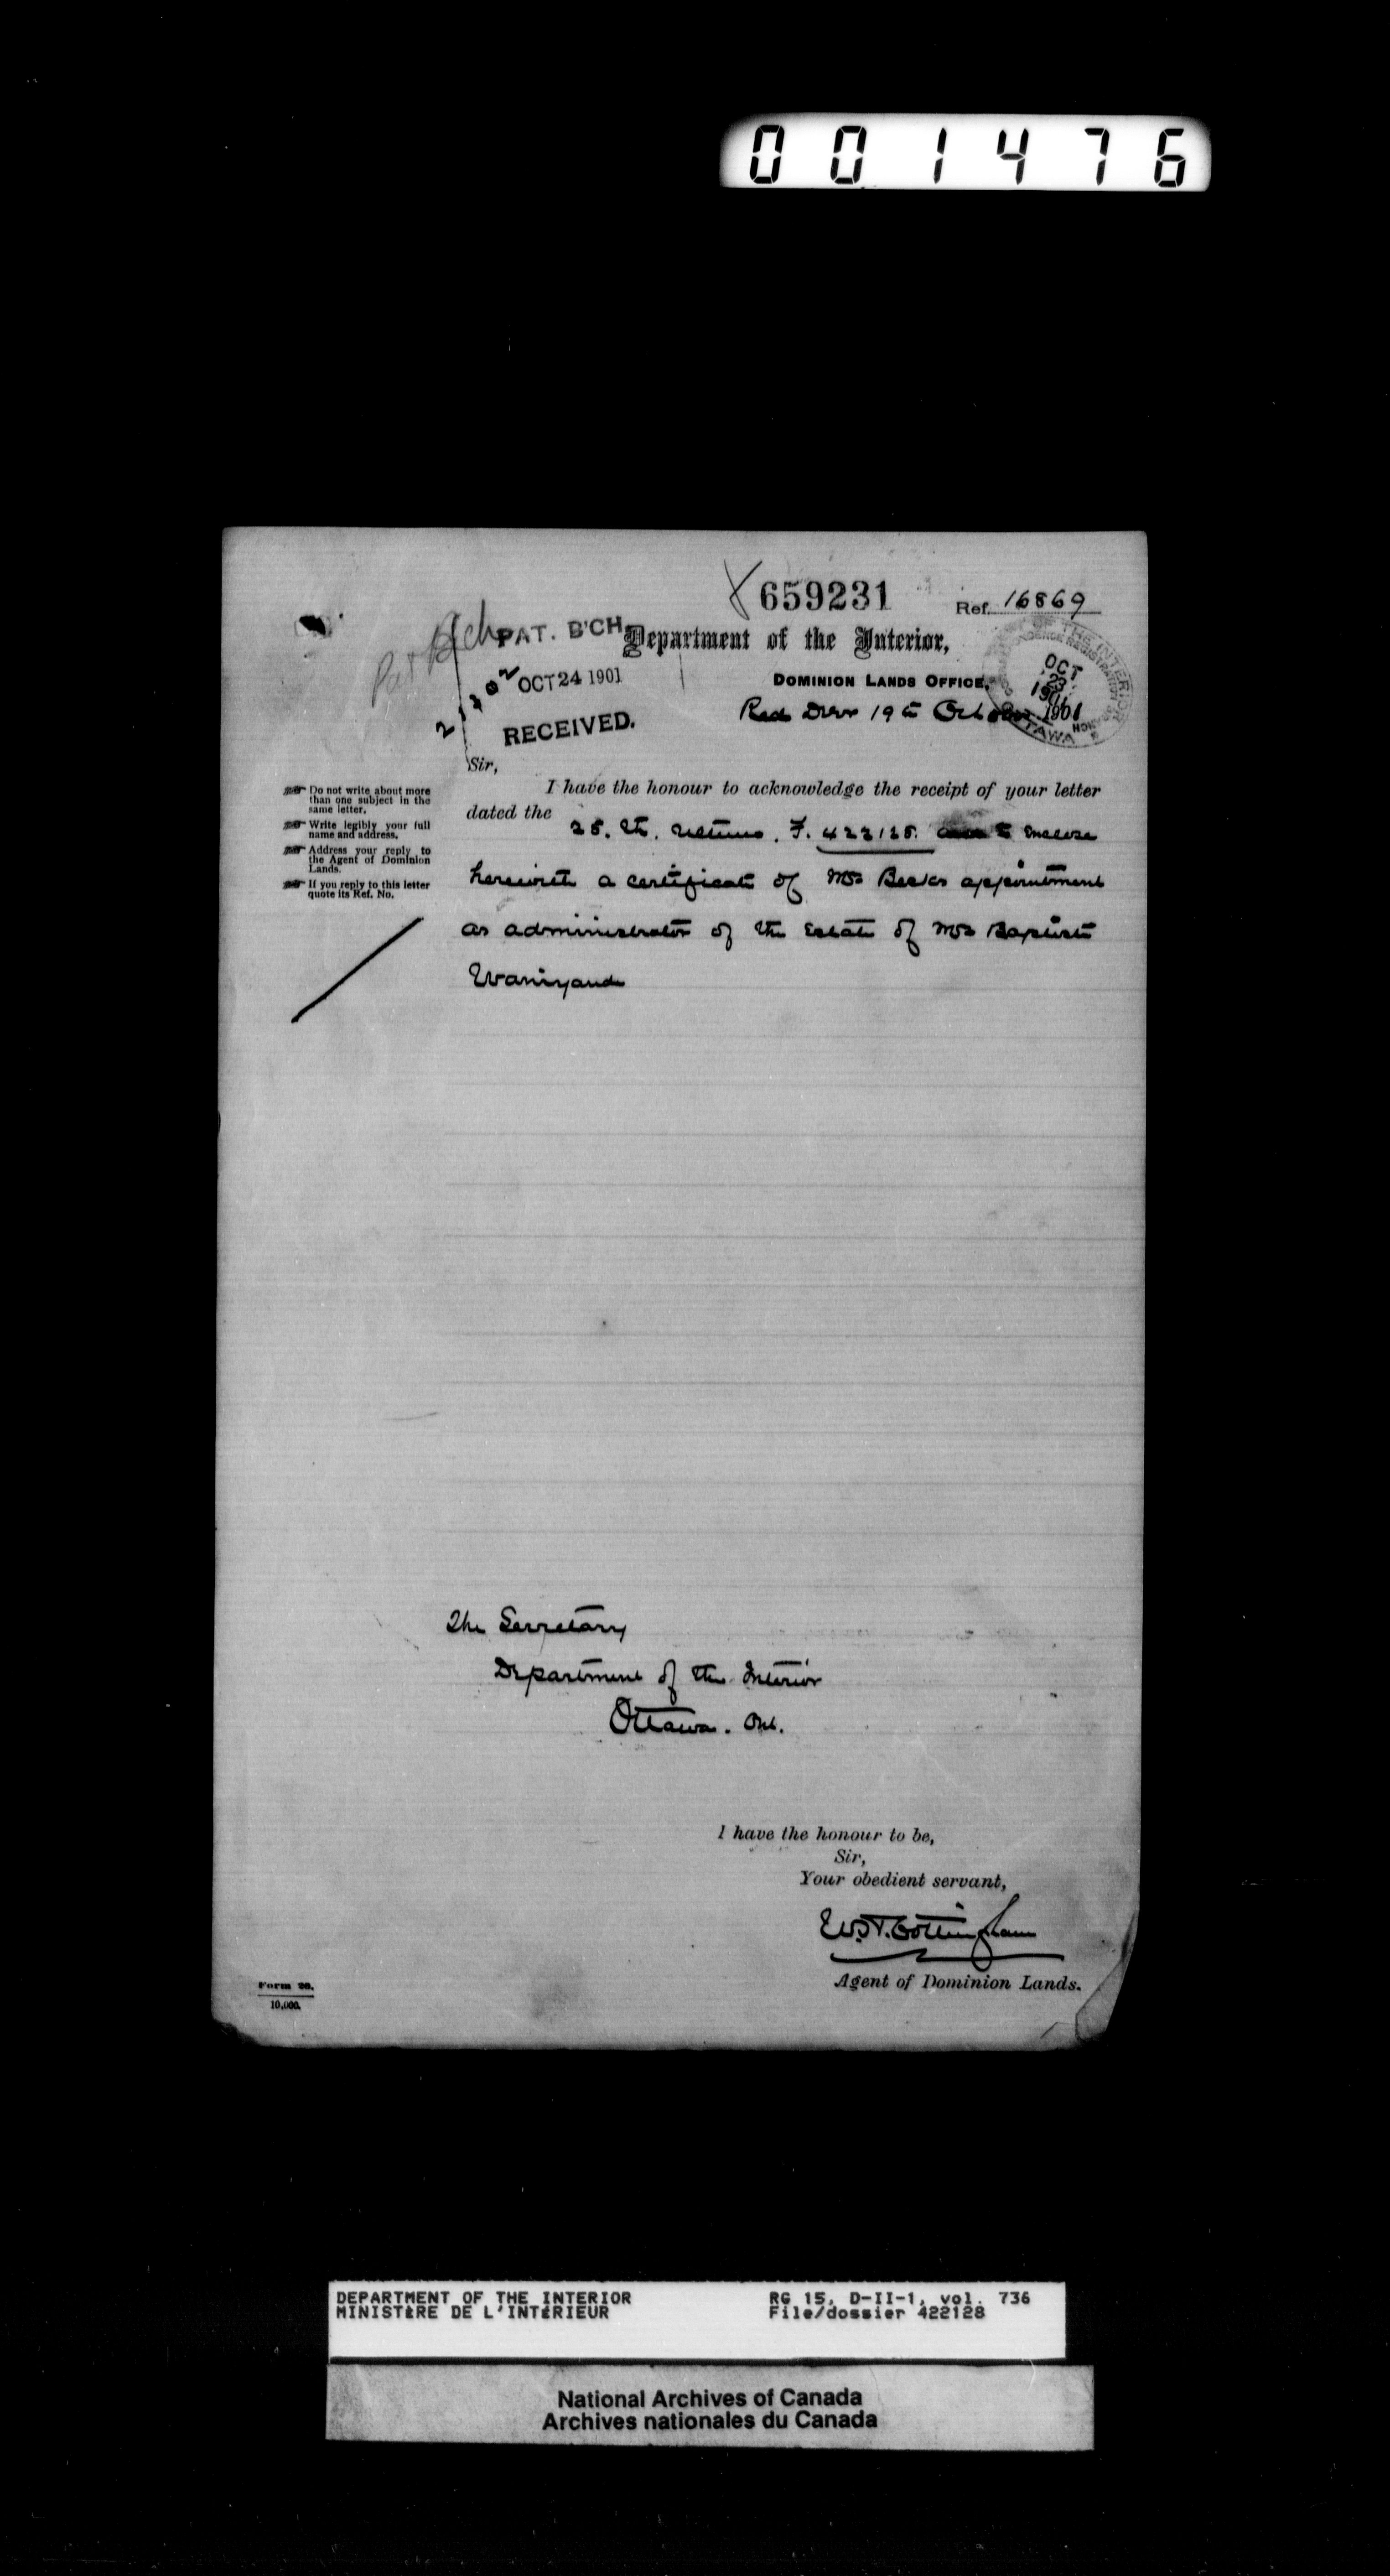 001476
659231
Ref. 16869
Pat Bch
PAT. B'CH.
Department of the Interior,
OCT 24 1901
21202
RECEIVED.
DOMINION LANDS OFFICE,
OCT
23
1901
OTTAWA
Red Deer 19th October 1901
Sir,
I have the honour to acknowledge the receipt of your letter
dated the
25. th. ultimo. F. 422128. and to enclose
herewith a certificate of Mr Beeks appointment
as administrator of the Estate of Mr Baptiste
Do not write about more
than one subject in the
same letter.
Write legibly your full
name and address.
Address your reply to
the Agent of Dominion
Lands.
If you reply to this letter
quote its Ref. No.
The Secretary
Department of the Interior
Ottawa. Ont.
I have the honour to be,
Sir,
Your obedient servant,
W.H. Cottingham
Agent of Dominion Lands.
Form 20.
10,000.
DEPARTMENT OF THE INTERIOR
MINISTÈRE DE L'INTÉRIEUR
RG 15, D-II-1, vol. 736
File/dossier 422128
National Archives of Canada
Archives nationales du Canada